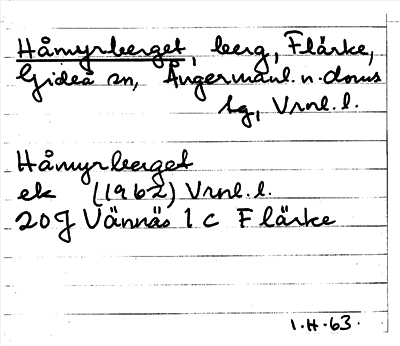 Håmyrberget, berg, Flärke,
Gideå sn, Ångermanl. n. doms
sg, Vrnl. l.
Håmyrberget
ek (1962) Vrnl. l.
20J Vännäs 1 c Flärke
1.H.63.